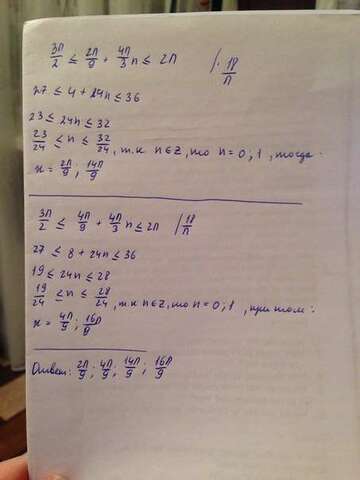 3π/2 ≤ 2π/9 + 4π/3 n ≤ 2π |· 18/π
27 ≤ 4 + 24n ≤ 36
23 ≤ 24n ≤ 32
23/24 ≤ n ≤ 32/24, т.к n∈Z, то n = 0; 1, тогда:
x = 2π/9; 14π/9
3π/2 ≤ 4π/9 + 4π/3 n ≤ 2π | 18/π
27 ≤ 8 + 24n ≤ 36
19 ≤ 24n ≤ 28
19/24 ≤ n ≤ 28/24, т.к n∈Z, то n = 0; 1, при том:
x = 4π/9; 16π/9
Ответ: 2π/9; 4π/9; 14π/9; 16π/9